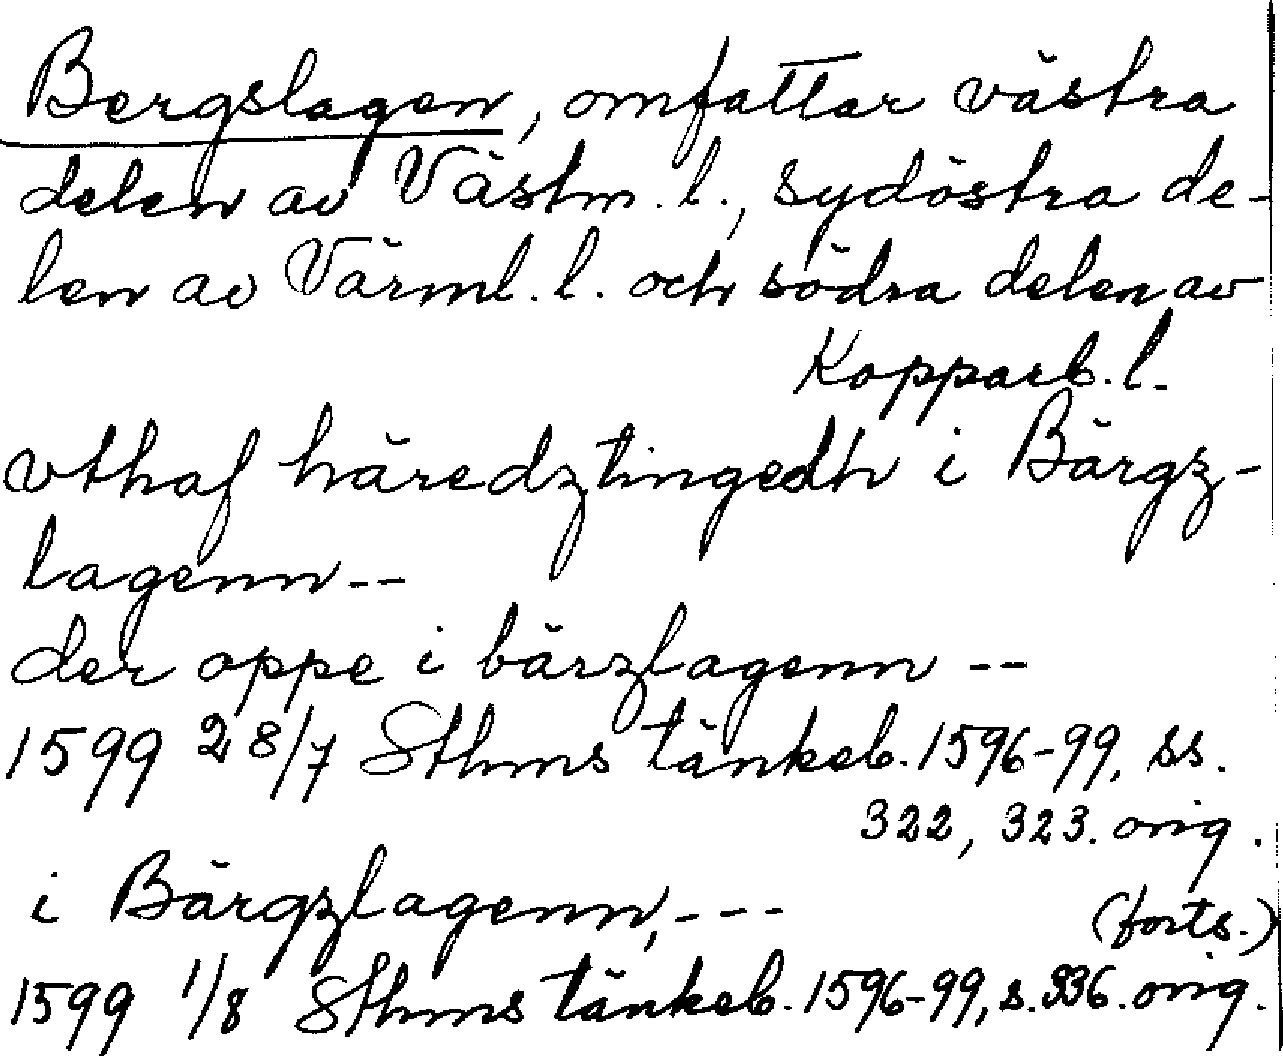 Bergslagen, omfattar västra
delen av Västm. l., sydöstra de-
len av Värml. l. och södra delen av
Kopparb. l.
vthaf häredztingedh i Bärgz-
lagenn--
der oppe i bärzlagenn --
1599 28/7 Sthms tänkeb. 1596-99, ss.
322, 323. orig.
i Bärgzlagenn, ---
(forts.)
1599 1/8 Sthms tänkeb. 1596-99, s. 336. orig.